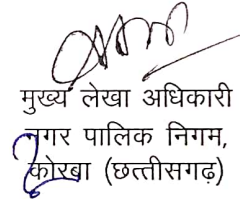 मुख्य लेखा अधिकारी
नगर पालिक निगम,
कोरबा (छत्तीसगढ़)